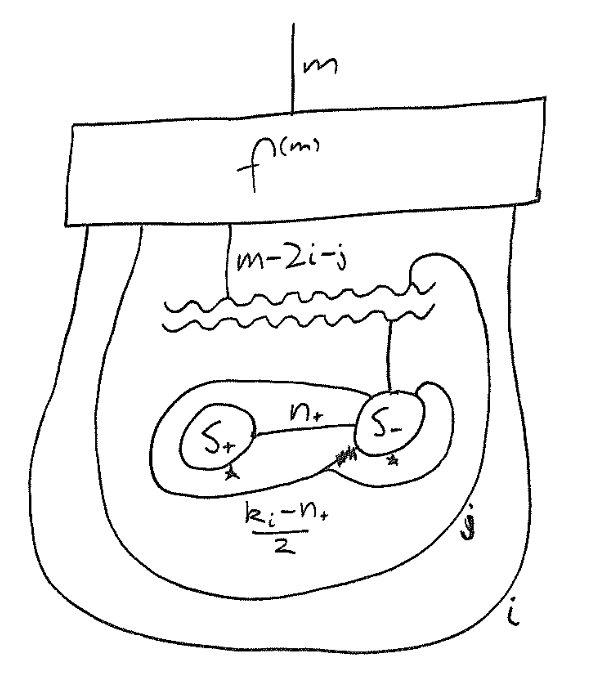 m
f^(m)
m-2i-j
n₊
S₊
S₋
★
★
k_i-n₊
2
j
i